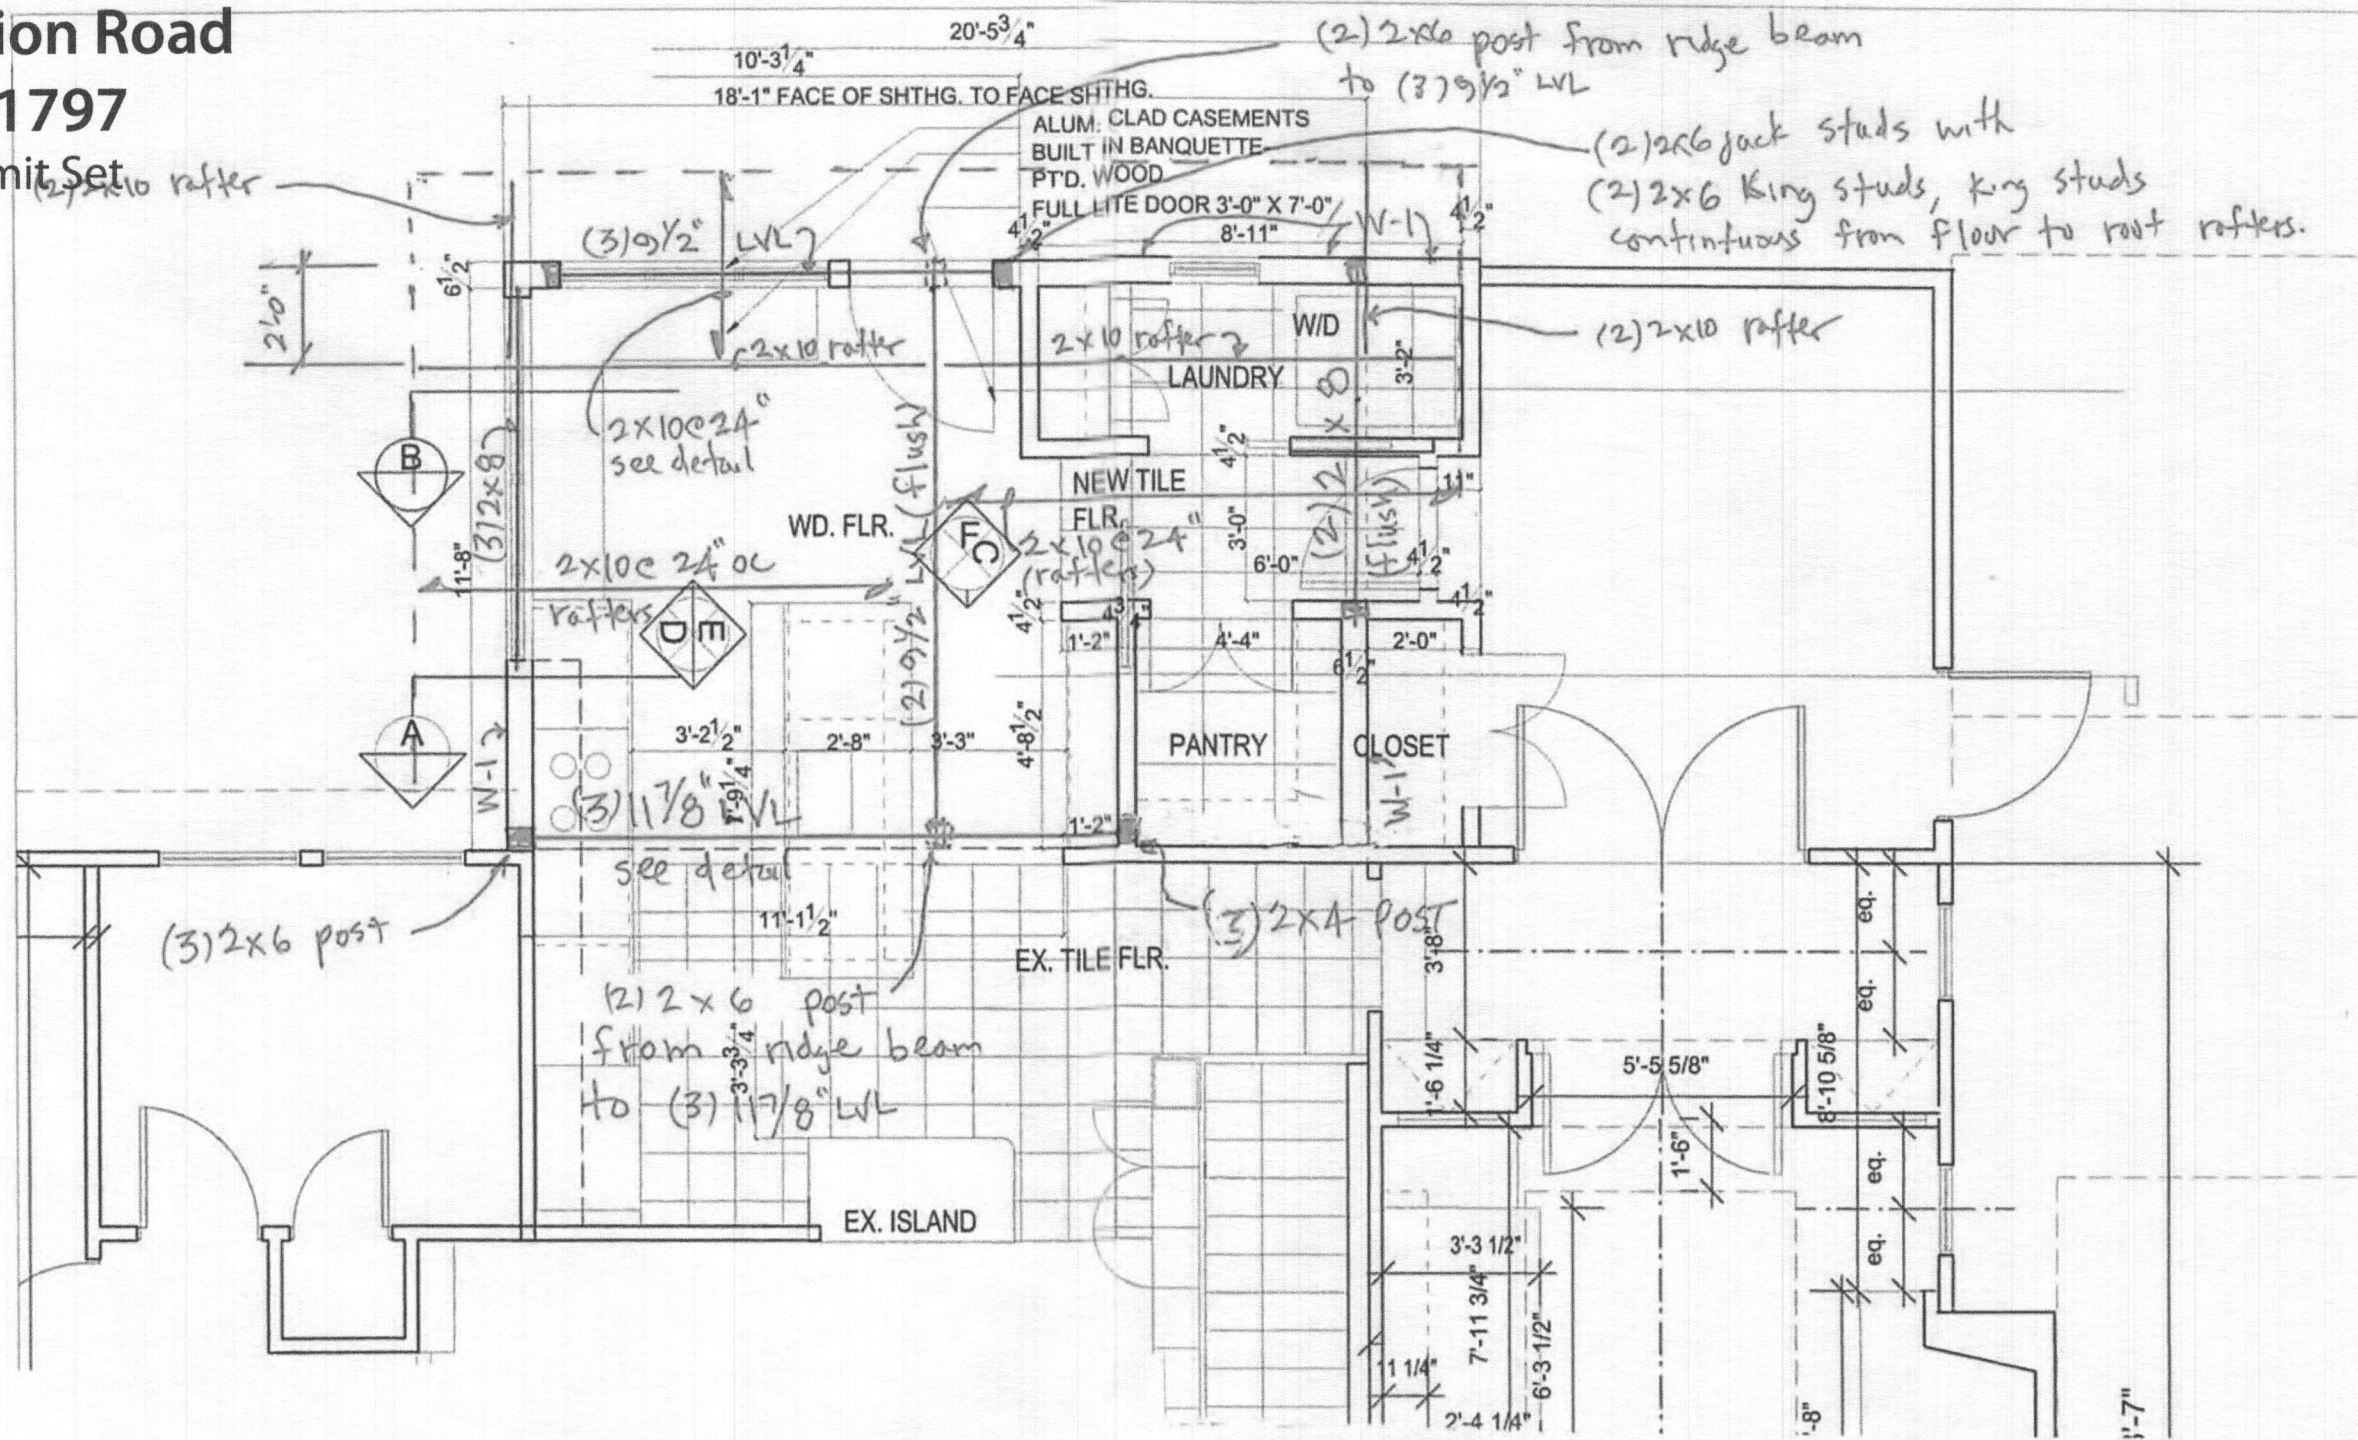 ion Road
1797
mit Set
(2) 2x10 rafter
20'-5 3/4"
10'-3 1/4"
18'-1" FACE OF SHTHG. TO FACE SHTHG.
ALUM. CLAD CASEMENTS
BUILT IN BANQUETTE
PT'D. WOOD
FULL LITE DOOR 3'-0" X 7'-0"
(2) 2x6 post from ridge beam
to (3) 9 1/2" LVL
(2) 2x6 jack studs with
(2) 2x6 King studs, king studs
contintuous from floor to roof rafters.
4 1/2"
8'-11"
W-1
4 1/2"
(3) 9 1/2" LVL
6 1/2"
2'-0"
2x10 rafter
2x10 rafter
W/D
(2) 2x10 rafter
LAUNDRY
3'-2"
2x10@24"
see detail
B
(3) 2x8
11'-8"
4 1/2"
NEW TILE
FLR.
11"
WD. FLR.
(2) 9 1/2" LVL (flush)
F
C
2x10@24"
(rafters)
3'-0"
6'-0"
(2) 2x8
(flush)
4 1/2"
4 1/2"
2x10@ 24" oc
rafters
D
E
4 1/2"
4 3/4"
1'-2"
4'-4"
2'-0"
6 1/2"
A
W-1
3'-2 1/2"
2'-8"
3'-3"
4'-8 1/2"
PANTRY
CLOSET
W-1
7'-9 1/4"
(3) 11 7/8" LVL
see detail
1'-2"
(3) 2x6 post
(3) 2x4 POST
11'-1 1/2"
EX. TILE FLR.
3'-8"
eq.
eq.
(2) 2x6 post
from ridge beam
to (3) 11 7/8" LVL
3'-3 3/4"
1'-6 1/4"
5'-5 5/8"
8'-10 5/8"
1'-6"
eq.
eq.
EX. ISLAND
3'-3 1/2"
7'-11 3/4"
6'-3 1/2"
11 1/4"
2'-4 1/4"
'-8"
'-7"